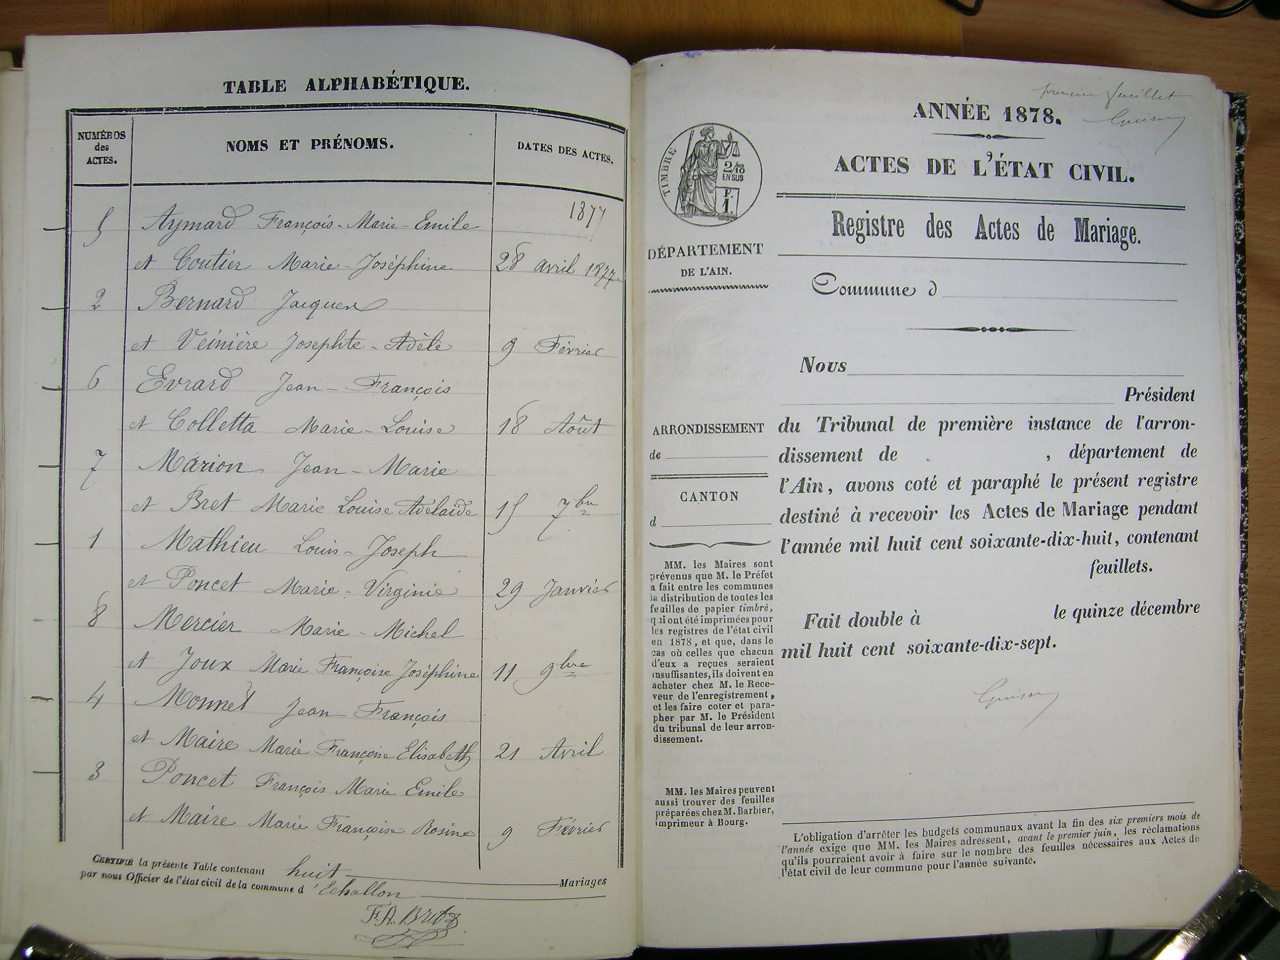 TABLE ALPHABÉTIQUE.
NUMÉROS
des
ACTES.
NOMS ET PRÉNOMS.
DATES DES ACTES.
1877
5 Aymard François-Marie-Emile
et Coutier Marie-Joséphine 28 avril 1877
2 Bernard Jacques
et Veinière Josephte-Adèle 9 Février
6 Evrard Jean-François
et Colletta Marie-Louise 18 Août
7 Marion Jean-Marie
et Bret Marie Louise Adelaïde 15 7bre
1 Mathieu Louis-Joseph
et Poncet Marie-Virginie 29 Janvier
8 Mercier Marie-Michel
et Joux Marie Françoise Joséphine 11 9bre
4 Monnet Jean François
et Maire Marie Françoise Elisabeth 21 Avril
3 Poncet François Marie Emile
et Maire Marie Françoise Rosine 9 Février
CERTIFIÉ la présente Table contenant huit Mariages
par nous Officier de l'état civil de la commune d'Echallon
premier feuillet
ANNÉE 1878.
ACTES DE L'ÉTAT CIVIL.
Registre des Actes de Mariage.
TIMBRE
2/10
EN SUS
F.
1
DÉPARTEMENT
DE L'AIN.
Commune d
Nous
Président
du Tribunal de première instance de l'arron-
dissement de , département de
l'Ain, avons coté et paraphé le présent registre
destiné à recevoir les Actes de Mariage pendant
l'année mil huit cent soixante-dix-huit, contenant
feuillets.
Fait double à le quinze décembre
mil huit cent soixante-dix-sept.
ARRONDISSEMENT
de
CANTON
d
MM. les Maires sont
prévenus que M. le Préfet
a fait entre les communes
la distribution de toutes les
feuilles de papier timbré,
qui ont été imprimées pour
les registres de l'état civil
en 1878, et que, dans le
cas où celles que chacun
d'eux a reçues seraient
insuffisantes, ils doivent en
acheter chez M. le Rece-
veur de l'enregistrement,
et les faire coter et para-
pher par M. le Président
du tribunal de leur arron-
dissement.
MM. les Maires peuvent
aussi trouver des feuilles
préparées chez M. Barbier,
imprimeur à Bourg.
L'obligation d'arrêter les budgets communaux avant la fin des six premiers mois de
l'année exige que MM. les Maires adressent, avant le premier juin, les réclamations
qu'ils pourraient avoir à faire sur le nombre des feuilles nécessaires aux Actes de
l'état civil de leur commune pour l'année suivante.